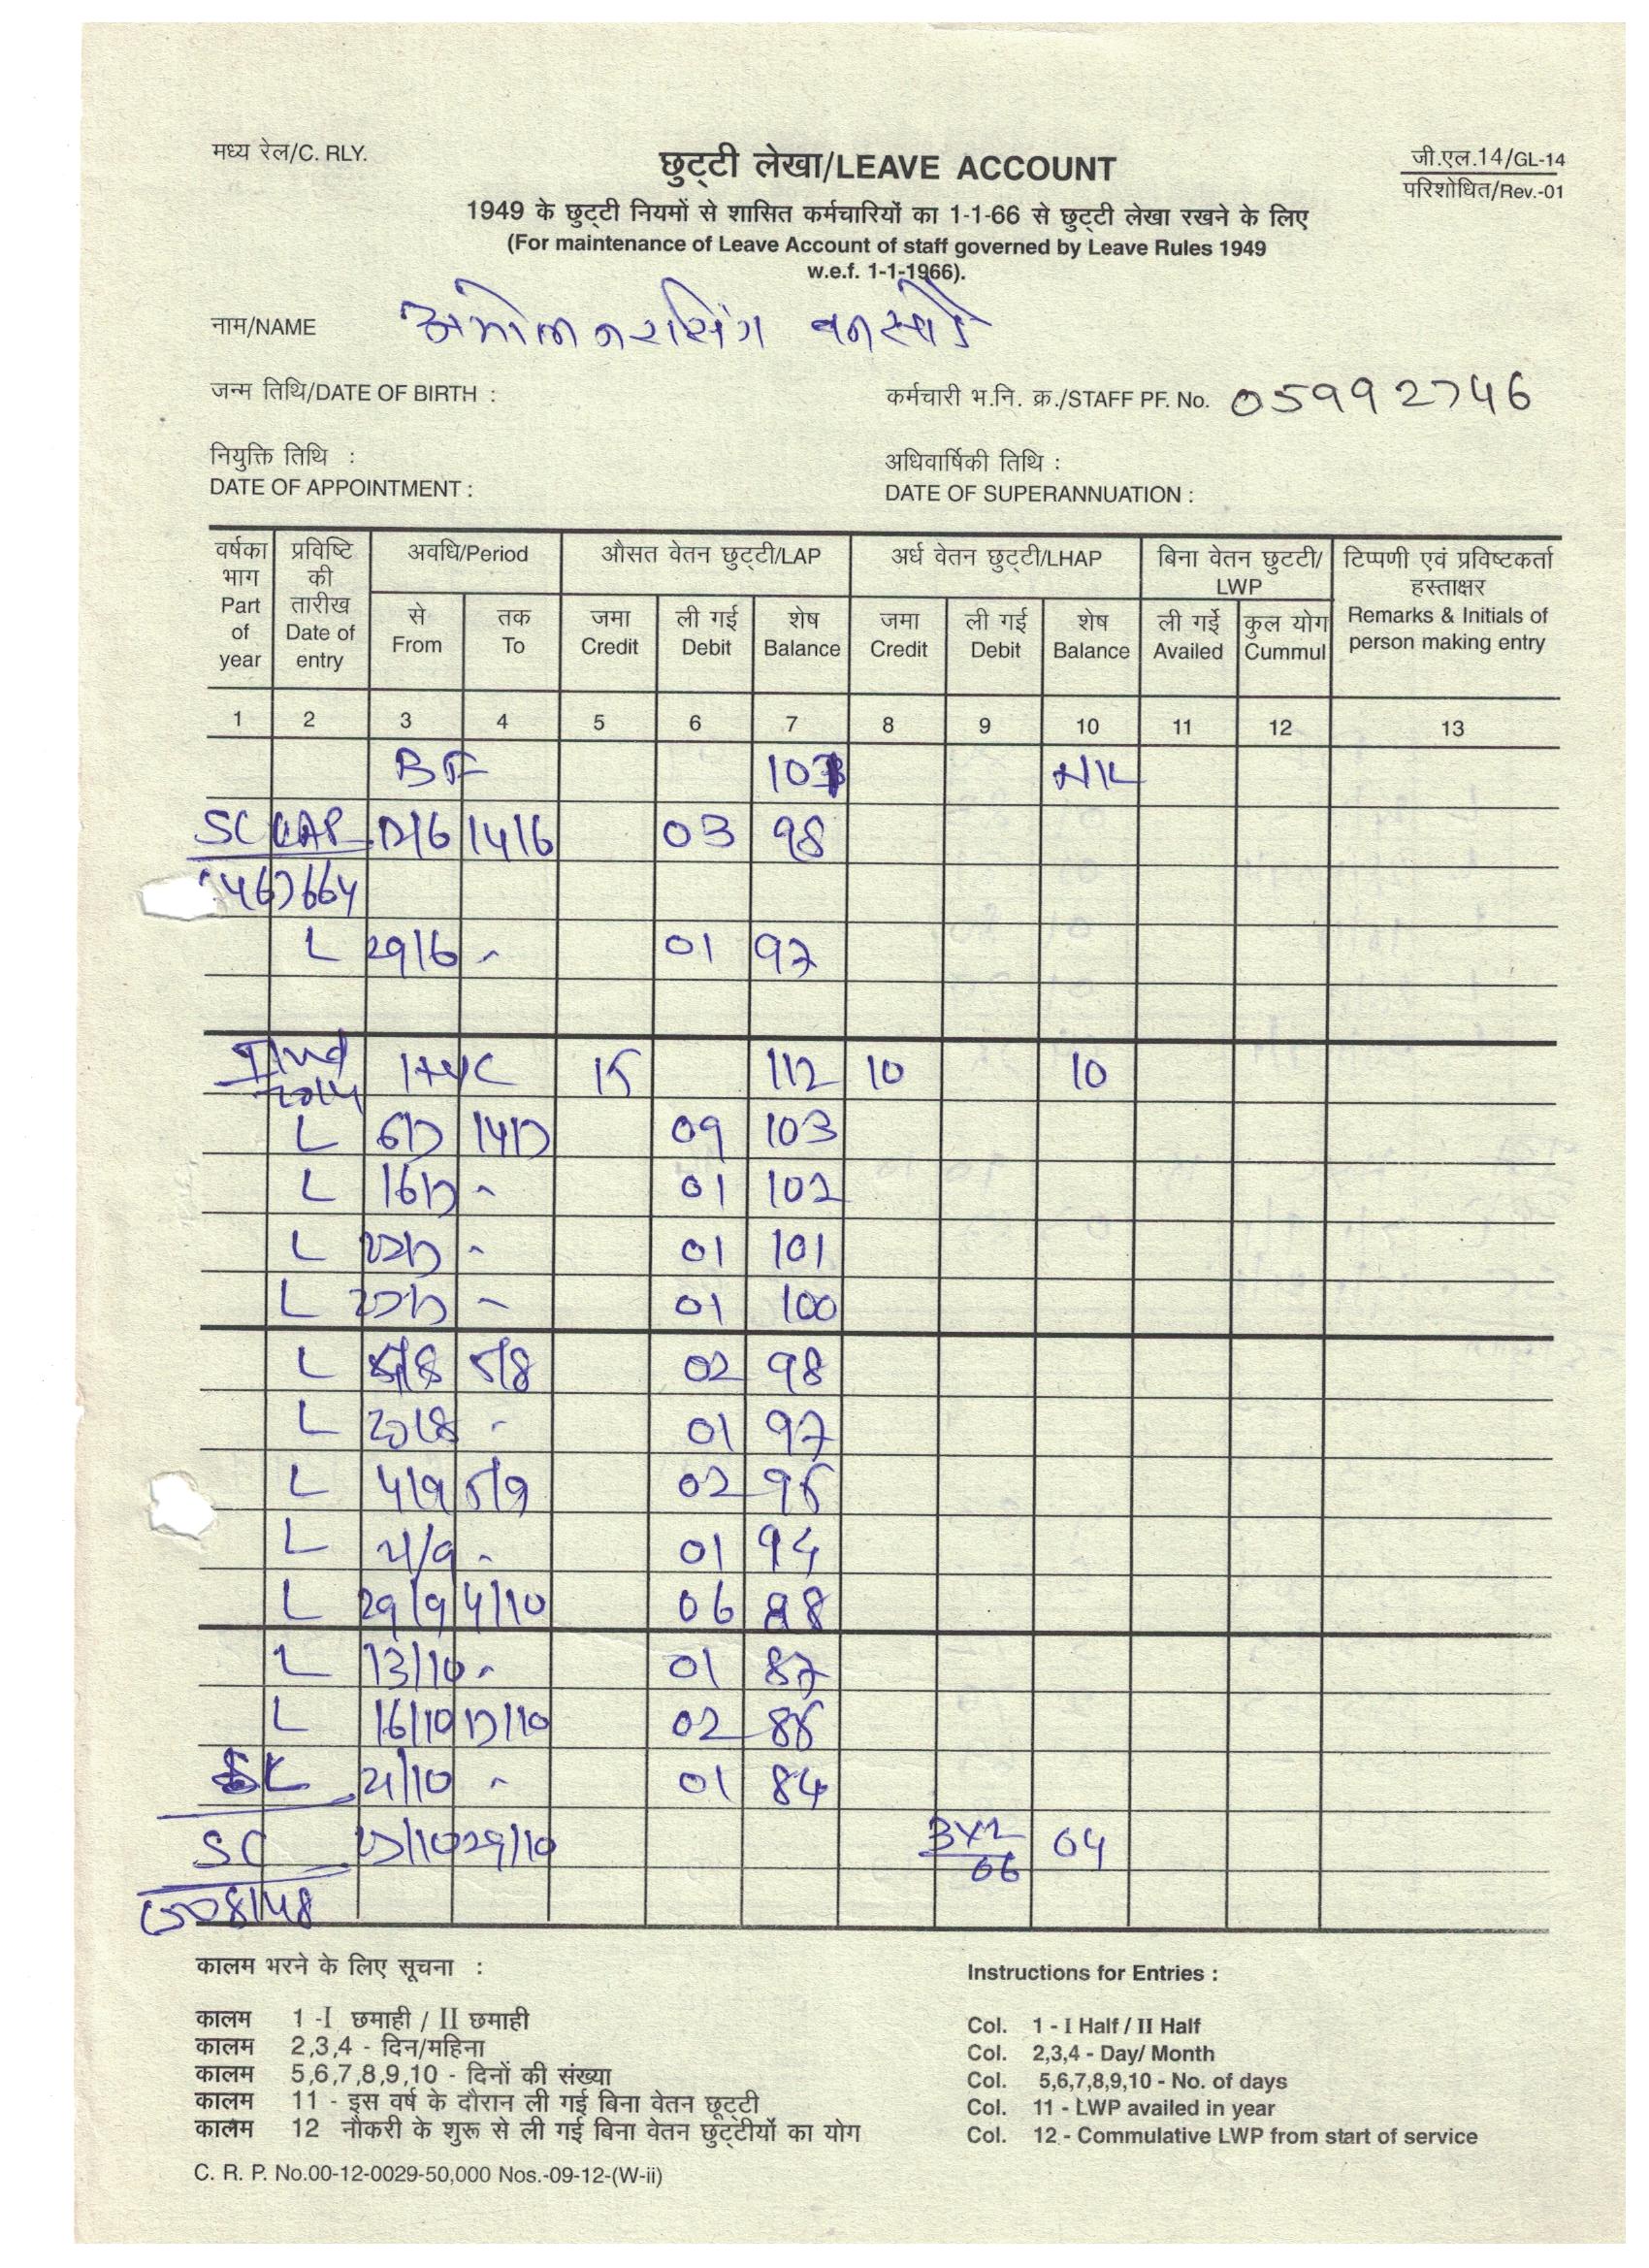 मध्य रेल/C. RLY.
छुट्टी लेखा/LEAVE ACCOUNT
जी.एल.14/GL-14
परिशोधित/Rev.-01
1949 के छुट्टी नियमों से शासित कर्मचारियों का 1-1-66 से छुट्टी लेखा रखने के लिए
(For maintenance of Leave Account of staff governed by Leave Rules 1949
w.e.f. 1-1-1966).
नाम/NAME अमोल नरसिंग बनसोडे
जन्म तिथि/DATE OF BIRTH :
कर्मचारी भ.नि. क्र./STAFF PF. No. 05992746
नियुक्ति तिथि :
DATE OF APPOINTMENT :
अधिवार्षिकी तिथि :
DATE OF SUPERANNUATION :
वर्षका भाग Part of year
प्रविष्टि की तारीख Date of entry
अवधि/Period
से From
तक To
औसत वेतन छुट्टी/LAP
जमा Credit
ली गई Debit
शेष Balance
अर्ध वेतन छुट्टी/LHAP
जमा Credit
ली गई Debit
शेष Balance
बिना वेतन छुटटी/ LWP
ली गईे Availed
कुल योग Cummul
टिप्पणी एवं प्रविष्टकर्ता हस्ताक्षर
Remarks & Initials of person making entry
1 2 3 4 5 6 7 8 9 10 11 12 13
BF NIL
SC LAP 12/6 14/6 03 98
467664
L 29/6 - 01 97
15 112 10 10
L 6/7 14/7 09 103
L 16/7 - 01 102
L 22/7 - 01 101
L 27/7 - 01 100
L 5/8 02 98
L - 01 97
L 4/9 5/9 02 95
L 21/9 - 01 94
L 29/9 4/10 06 88
L 13/10 - 01 87
L 16/10 17/10 02 85
21/10 - 01 84
SC 27/10 29/10 3x2 04
06
कालम भरने के लिए सूचना :
कालम 1 -I छमाही / II छमाही
कालम 2,3,4 - दिन/महिना
कालम 5,6,7,8,9,10 - दिनों की संख्या
कालम 11 - इस वर्ष के दौरान ली गई बिना वेतन छूट्टी
कालम 12 नौकरी के शुरू से ली गई बिना वेतन छुट्टीयों का योग
Instructions for Entries :
Col. 1 - I Half / II Half
Col. 2,3,4 - Day/ Month
Col. 5,6,7,8,9,10 - No. of days
Col. 11 - LWP availed in year
Col. 12 - Commulative LWP from start of service
C. R. P. No.00-12-0029-50,000 Nos.-09-12-(W-ii)